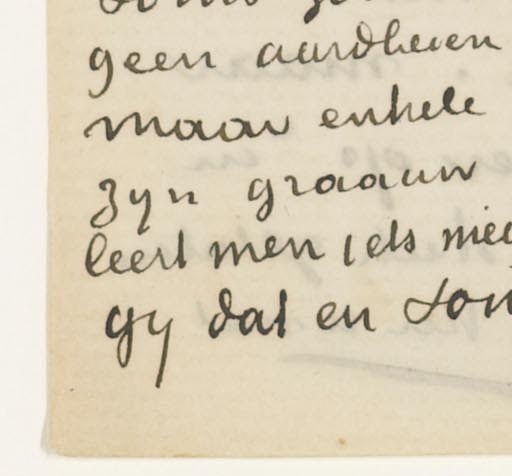 geen aardbeien
maar enkele
zyn graauw
leert men iets
gy dat en